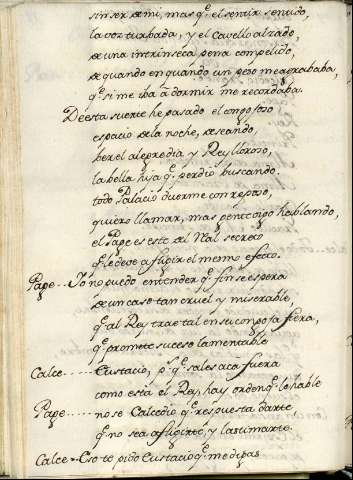 sin ser de mi, mas q̃ el sentir sentido,
la voz turbada, y el cavello alzado,
de una intrinseca pena compelido,
de quando en quando un peso me agrababa,
q̃ si me iba à dormir me recordaba.
De esta suerte he pasado el congojoso
espacio de la noche, deseando,
ber el alegre dia y Rey lloroso,
la bella hija q̃ perdio buscando.
todo Palacio duerme con reposo,
quiero llamar, mas gente oigo hablando,
el Page es este del Real secreto
q̃ le debe afligir el mesmo efecto.
Page -- Yo no puedo entender q̃ fin se espera
de un caso tan cruel y miserable,
q̃ al Rey trae tal en su congoja fiera,
q̃ promete suceso lamentable
Calce ---- Eustacio, p.ʳ q̃ sales aca fuera
como está el Rey, hay orden q̃ le hable
Page ---- no se Calcedio q̃ respuesta darte
q̃ no sea afligirte, y lastimarte.
Calce -- Eso te pido Eustacio q̃ me digas